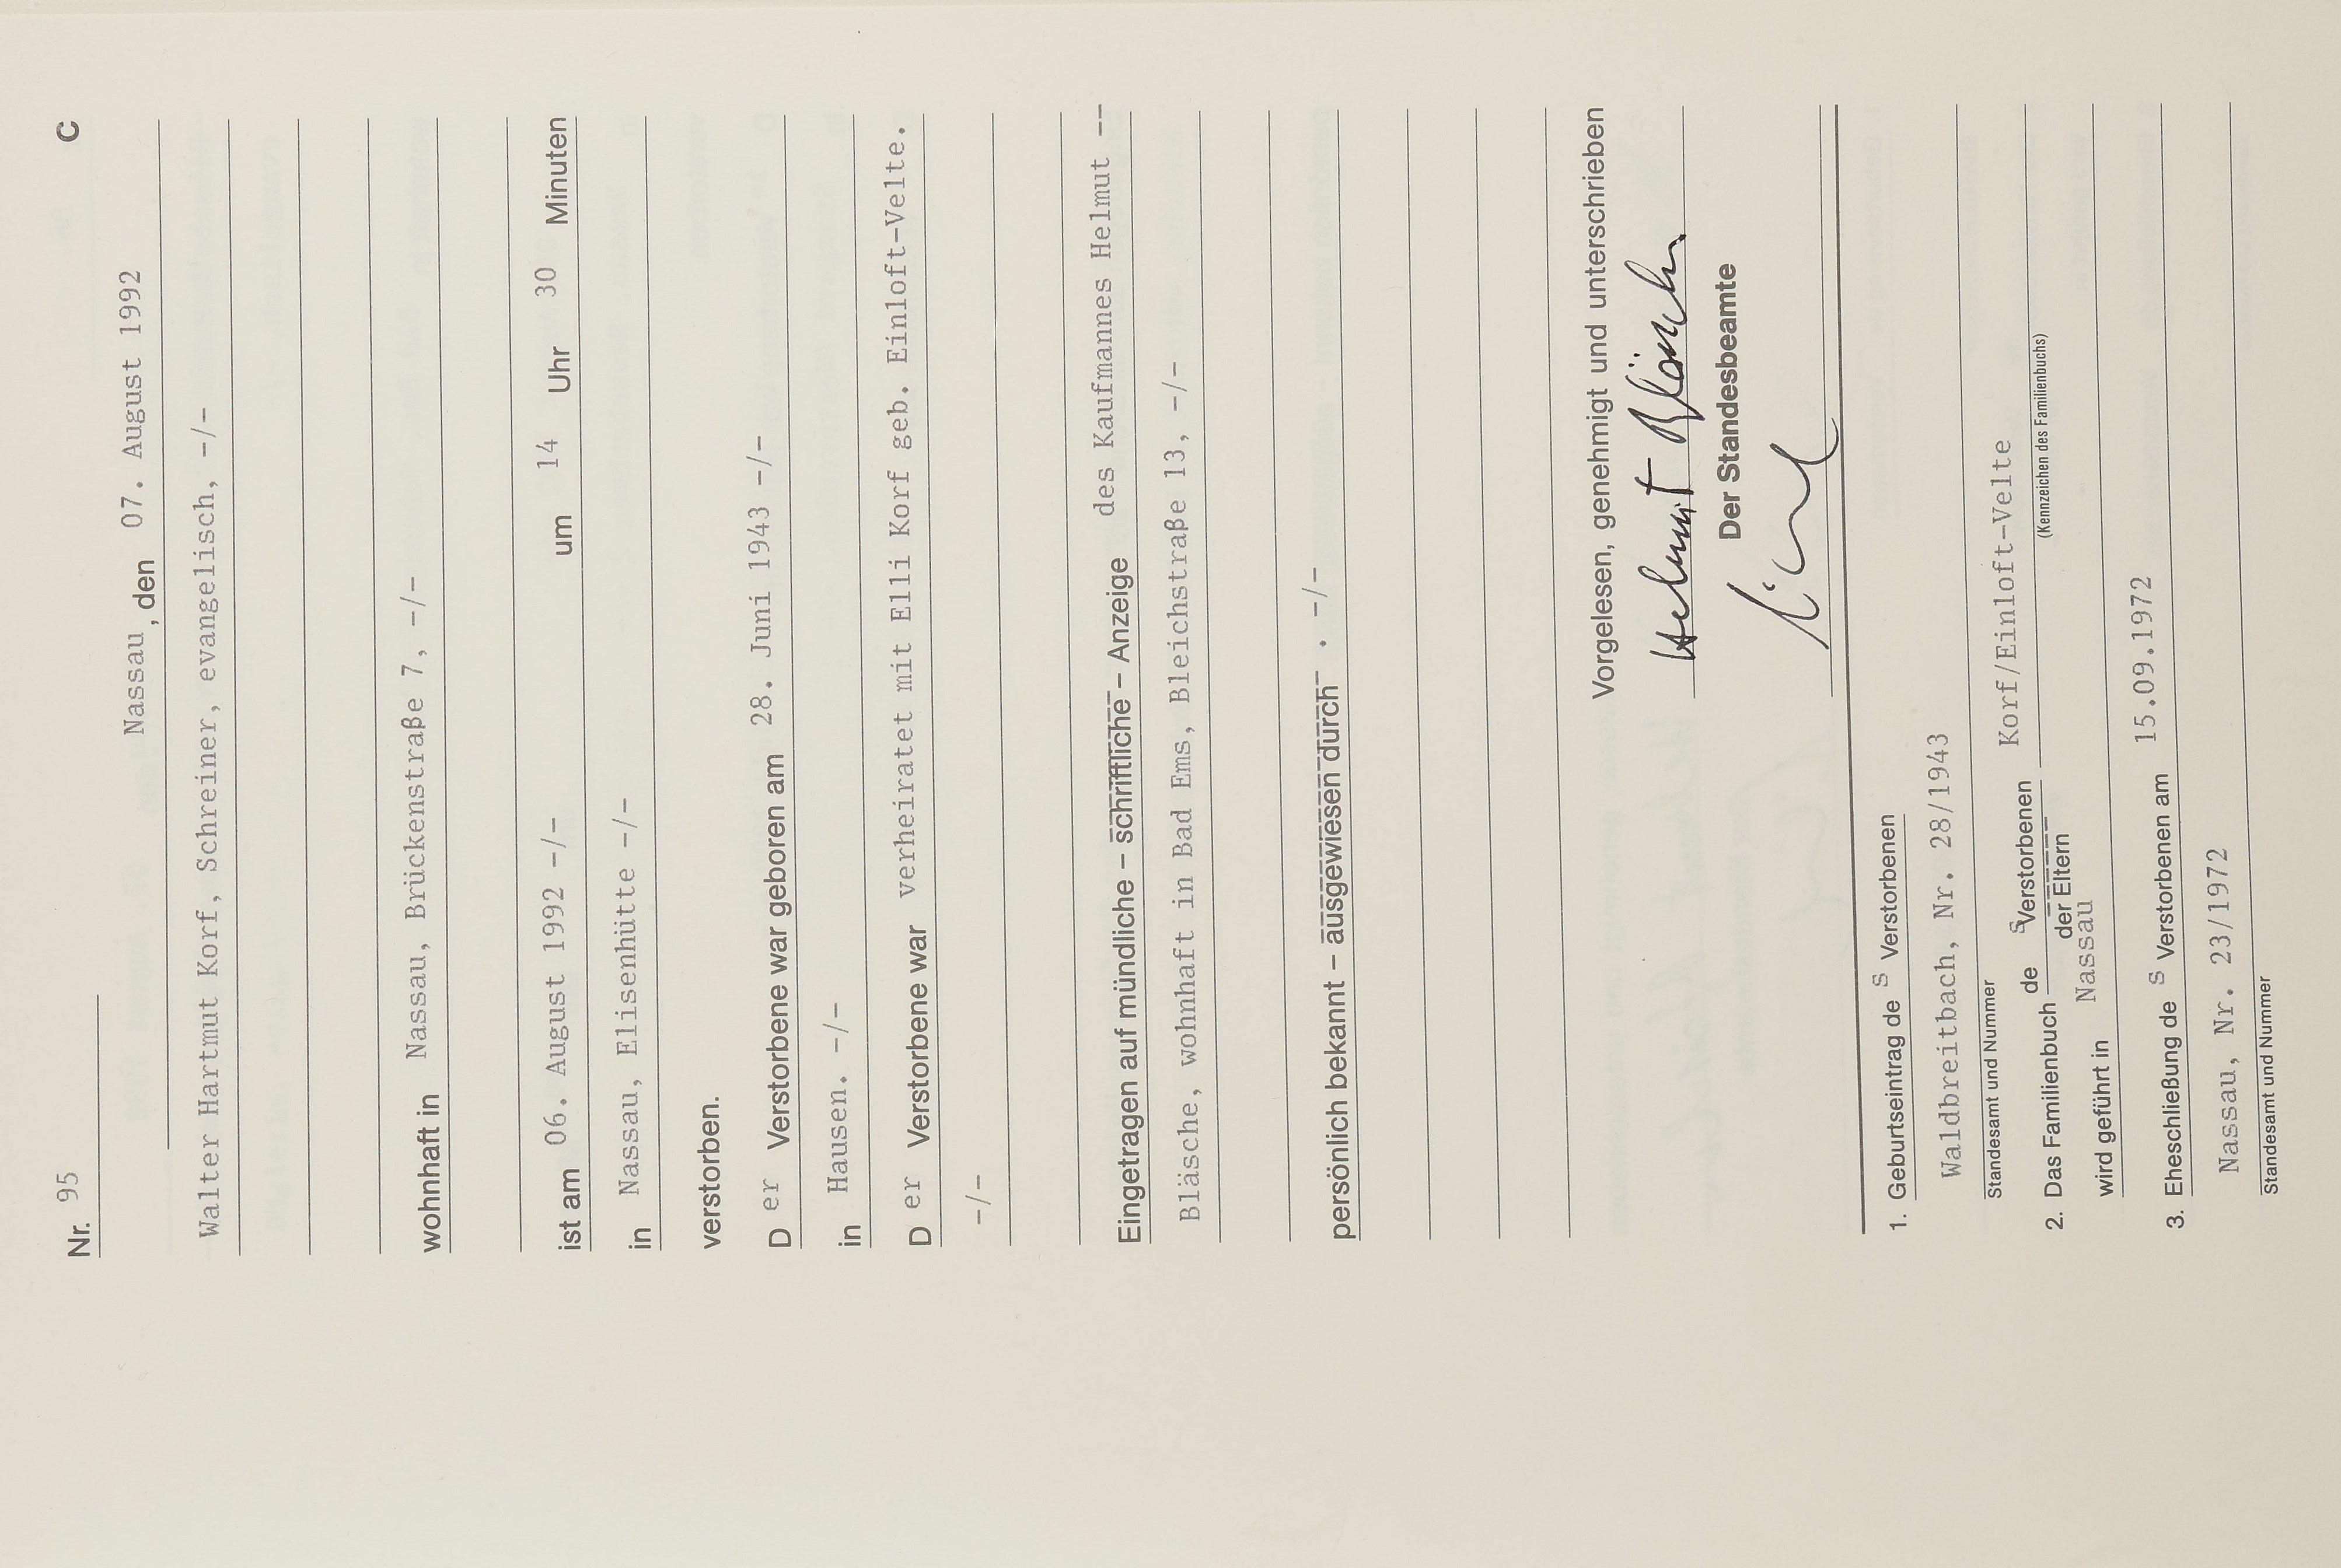 Nr. 95 C
Nassau, den 07. August 1992
Walter Hartmut Korf, Schreiner, evangelisch, -/-
wohnhaft in Nassau, Brückenstraße 7, -/-
ist am 06. August 1992 -/- um 14 Uhr 30 Minuten
in Nassau, Elisenhütte -/-
verstorben.
D er Verstorbene war geboren am 28. Juni 1943 -/-
in Hausen. -/-
D er Verstorbene war verheiratet mit Elli Korf geb. Einloft-Velte.
-/-
Eingetragen auf mündliche - schriftliche - Anzeige des Kaufmannes Helmut --
Bläsche, wohnhaft in Bad Ems, Bleichstraße 13, -/-
persönlich bekannt - ausgewiesen durch . -/-
Vorgelesen, genehmigt und unterschrieben
Helmut Bläsche
Der Standesbeamte
1. Geburtseintrag de s Verstorbenen
Waldbreitbach, Nr. 28/1943
Standesamt und Nummer
2. Das Familienbuch de s Verstorbenen Korf/Einloft-Velte
der Eltern (Kennzeichen des Familienbuchs)
wird geführt in Nassau
3. Eheschließung de s Verstorbenen am 15.09.1972
Nassau, Nr. 23/1972
Standesamt und Nummer